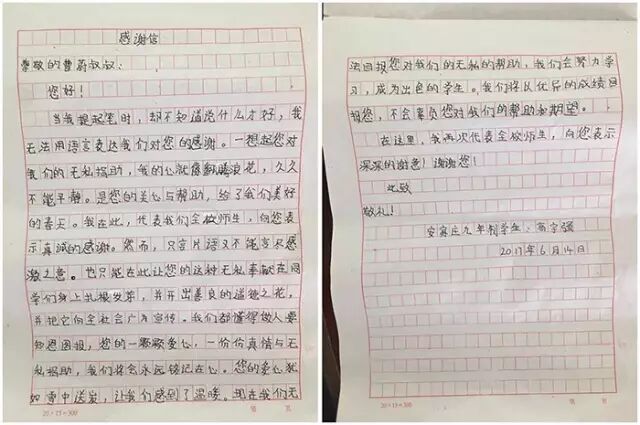 感谢信
尊敬的曹蔚叔叔：
您好！
当我提起笔时，却不知道说什么才好，我
无法用语言表达我们对您的感谢。一想起您对
我们的无私捐助，我的心就像翻腾浪花，久久
不能平静。是您的关心与帮助，给了我们美好
的春天。我在此，代表我们全校师生，向您表
示真诚的感谢。然而，只言片语又不能言尽感
激之意。也只能在此让您的这种无私奉献在同
学们身上扎根发芽，并开出善良的道德之花，
并把它向全社会广为宣传。我们都懂得做人要
知恩图报，您的一颗颗爱心，一份份真情与无
私捐助，我们将会永远铭记在心。您的爱心犹
如雪中送炭，让我们感到了温暖。现在我们无
20×15=300
第 页
法回报您对我们的无私的帮助，我们会努力学
习，成为出色的学生。我们将以优异的成绩回
报您，不会辜负您对我们的帮助和期望。
在这里，我再次代表全校师生，向您表示
深深的谢意！谢谢您！
此致
敬礼！
安寅庄九年制学生：高宇强
2017年6月14日
20×15=300
第 页